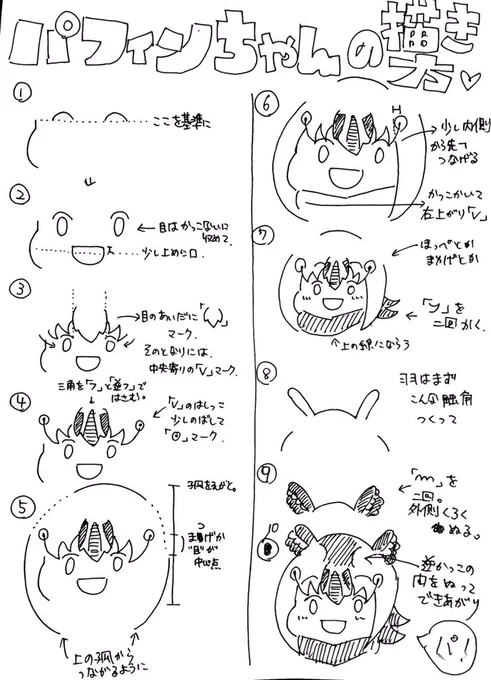 パフィンちゃんの描き方♡
①
ここを基準に
②
目はかっこないに
収めて。
少し上めら口。
③
目のあいだに「
」
マーク。
そのとなりには、
中央寄りの「V」マーク。
三角を「フ」と「逆フ」で
はさむ。
④
「V」のはしっこ
少しのばして
「⊙」マーク。
⑤
弧をえがと。
中心点
上の弧から
つながるように
⑥
少し内側
から先っ
つなげる
かっこかいて
右上がり「V」
⑦
ほっぺとか
まゆげとか
「ソ」を
二回かく。
↑上の線にならう
⑧
ヨヨはまず
こんな触角
つくって
⑨
「m」を
二回。
外側くろく
ぬる。
⑩
逆かっこの
内をぬって
できあがり
パ!